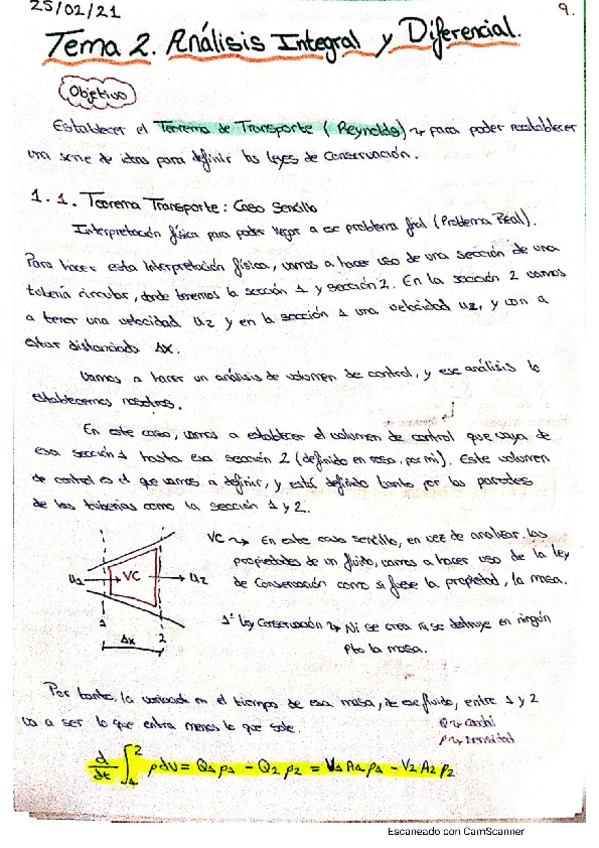 25/02/21
9.
Tema 2. Análisis Integral y Diferencial.
Objetivo
Establecer el Teorema de Transporte (Reynolds) ↝ para poder reestablecer
una serie de ideas para definir las leyes de Conservación.
1.1. Teorema Transporte: Caso Sencillo
Interpretación física para poder llegar a ese problema final (Problema Real).
Para hacer esta Interpretación física, vamos a hacer uso de una sección de una
tubería circular, donde tenemos la sección 1 y sección 2. En la sección 2 vamos
a tener una velocidad u2 y en la sección 1 una velocidad u2, y van a
estar distanciado Δx.
Vamos a hacer un análisis de volumen de control, y ese análisis lo
establecemos nosotros.
En este caso, vamos a establecer el volumen de control que vaya de
esa sección 1 hasta esa sección 2 (definido en rosa, por mí). Este volumen
de control es el que vamos a definir, y está definido tanto por las paredes
de las tuberías como la sección 1 y 2.
VC ↝ En este caso sencillo, en vez de analizar las
propiedades de un fluido, vamos a hacer uso de la ley
de Conservación como si fuese la propiedad, la masa.
u1 VC u2
1 2
Δx
1ª Ley Conservación ↝ Ni se crea ni se destruye en ningún
pto la masa.
Por tanto, la variación en el tiempo de esa masa, de ese fluido, entre 1 y 2
va a ser lo que entra menos lo que sale.
Q ↝ caudal
ρ ↝ densidad
d/dt ∫₁² ρdv = Q1 ρ1 - Q2 ρ2 = V1 A1 ρ1 - V2 A2 ρ2
Escaneado con CamScanner